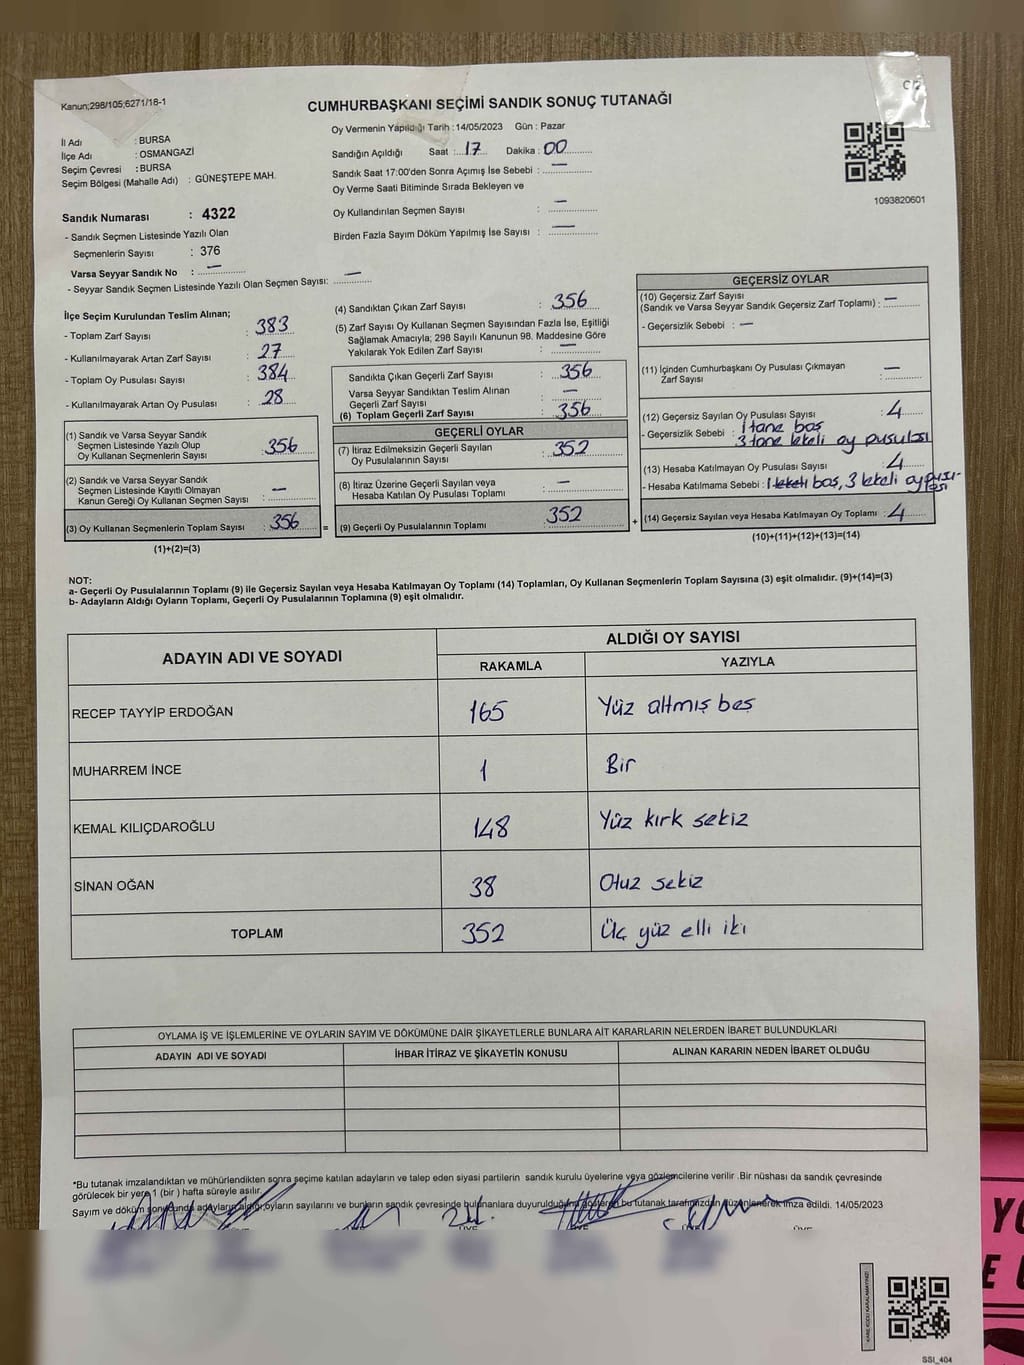 Kanun;298/105;6271/18-1
CUMHURBAŞKANI SEÇİMİ SANDIK SONUÇ TUTANAĞI
Oy Vermenin Yapıldığı Tarih :14/05/2023 Gün : Pazar
İl Adı : BURSA
İlçe Adı : OSMANGAZİ
Seçim Çevresi : BURSA
Seçim Bölgesi (Mahalle Adı) : GÜNEŞTEPE MAH.
Sandık Numarası : 4322
- Sandık Seçmen Listesinde Yazılı Olan
Seçmenlerin Sayısı : 376
Varsa Seyyar Sandık No : —
- Seyyar Sandık Seçmen Listesinde Yazılı Olan Seçmen Sayısı: —
Sandığın Açıldığı Saat : 17 Dakika : 00
Sandık Saat 17:00'den Sonra Açımış İse Sebebi : —
Oy Verme Saati Bitiminde Sırada Bekleyen ve
Oy Kullandırılan Seçmen Sayısı : —
Birden Fazla Sayım Döküm Yapılmış İse Sayısı : —
1093820601
İlçe Seçim Kurulundan Teslim Alınan;
- Toplam Zarf Sayısı : 383
- Kullanılmayarak Artan Zarf Sayısı : 27
- Toplam Oy Pusulası Sayısı : 384
- Kullanılmayarak Artan Oy Pusulası : 28
(1) Sandık ve Varsa Seyyar Sandık
Seçmen Listesinde Yazılı Olup
Oy Kullanan Seçmenlerin Sayısı : 356
(2) Sandık ve Varsa Seyyar Sandık
Seçmen Listesinde Kayıtlı Olmayan
Kanun Gereği Oy Kullanan Seçmen Sayısı : —
(3) Oy Kullanan Seçmenlerin Toplam Sayısı : 356 =
(1)+(2)=(3)
(4) Sandıktan Çıkan Zarf Sayısı : 356
(5) Zarf Sayısı Oy Kullanan Seçmen Sayısından Fazla İse, Eşitliği
Sağlamak Amacıyla; 298 Sayılı Kanunun 98. Maddesine Göre
Yakılarak Yok Edilen Zarf Sayısı : —
Sandıkta Çıkan Geçerli Zarf Sayısı : 356
Varsa Seyyar Sandıktan Teslim Alınan
Geçerli Zarf Sayısı : —
(6) Toplam Geçerli Zarf Sayısı : 356
GEÇERLİ OYLAR
(7) İtiraz Edilmeksizin Geçerli Sayılan
Oy Pusulalarının Sayısı : 352
(8) İtiraz Üzerine Geçerli Sayılan veya
Hesaba Katılan Oy Pusulası Toplamı : —
(9) Geçerli Oy Pusulalarının Toplamı : 352 +
GEÇERSİZ OYLAR
(10) Geçersiz Zarf Sayısı
(Sandık ve Varsa Seyyar Sandık Geçersiz Zarf Toplamı) : —
- Geçersizlik Sebebi : —
(11) İçinden Cumhurbaşkanı Oy Pusulası Çıkmayan
Zarf Sayısı : —
(12) Geçersiz Sayılan Oy Pusulası Sayısı : 4
- Geçersizlik Sebebi : 1 tane boş
3 tane lekeli oy pusulası
(13) Hesaba Katılmayan Oy Pusulası Sayısı : 4
- Hesaba Katılmama Sebebi : 1 lekeli boş, 3 lekeli oy pusu-
lası
(14) Geçersiz Sayılan veya Hesaba Katılmayan Oy Toplamı : 4
(10)+(11)+(12)+(13)=(14)
NOT:
a- Geçerli Oy Pusulalarının Toplamı (9) ile Geçersiz Sayılan veya Hesaba Katılmayan Oy Toplamı (14) Toplamları, Oy Kullanan Seçmenlerin Toplam Sayısına (3) eşit olmalıdır. (9)+(14)=(3)
b- Adayların Aldığı Oyların Toplamı, Geçerli Oy Pusulalarının Toplamına (9) eşit olmalıdır.
ADAYIN ADI VE SOYADI ALDIĞI OY SAYISI
RAKAMLA YAZIYLA
RECEP TAYYİP ERDOĞAN 165 Yüz altmış beş
MUHARREM İNCE 1 Bir
KEMAL KILIÇDAROĞLU 148 Yüz kırk sekiz
SİNAN OĞAN 38 Otuz sekiz
TOPLAM 352 Üç yüz elli iki
OYLAMA İŞ VE İŞLEMLERİNE VE OYLARIN SAYIM VE DÖKÜMÜNE DAİR ŞİKAYETLERLE BUNLARA AİT KARARLARIN NELERDEN İBARET BULUNDUKLARI
ADAYIN ADI VE SOYADI İHBAR İTİRAZ VE ŞİKAYETİN KONUSU ALINAN KARARIN NEDEN İBARET OLDUĞU
*Bu tutanak imzalandıktan ve mühürlendikten sonra seçime katılan adayların ve talep eden siyasi partilerin sandık kurulu üyelerine veya gözlemcilerine verilir .Bir nüshası da sandık çevresinde
görülecek bir yere 1 (bir ) hafta süreyle asılır.
Sayım ve döküm sonucunda adayların aldığı oyların sayılarını ve bunların sandık çevresinde bulunanlara duyurulduğunu gösteren bu tutanak tarafımızdan düzenlenerek imza edildi. 14/05/2023
SSI_404